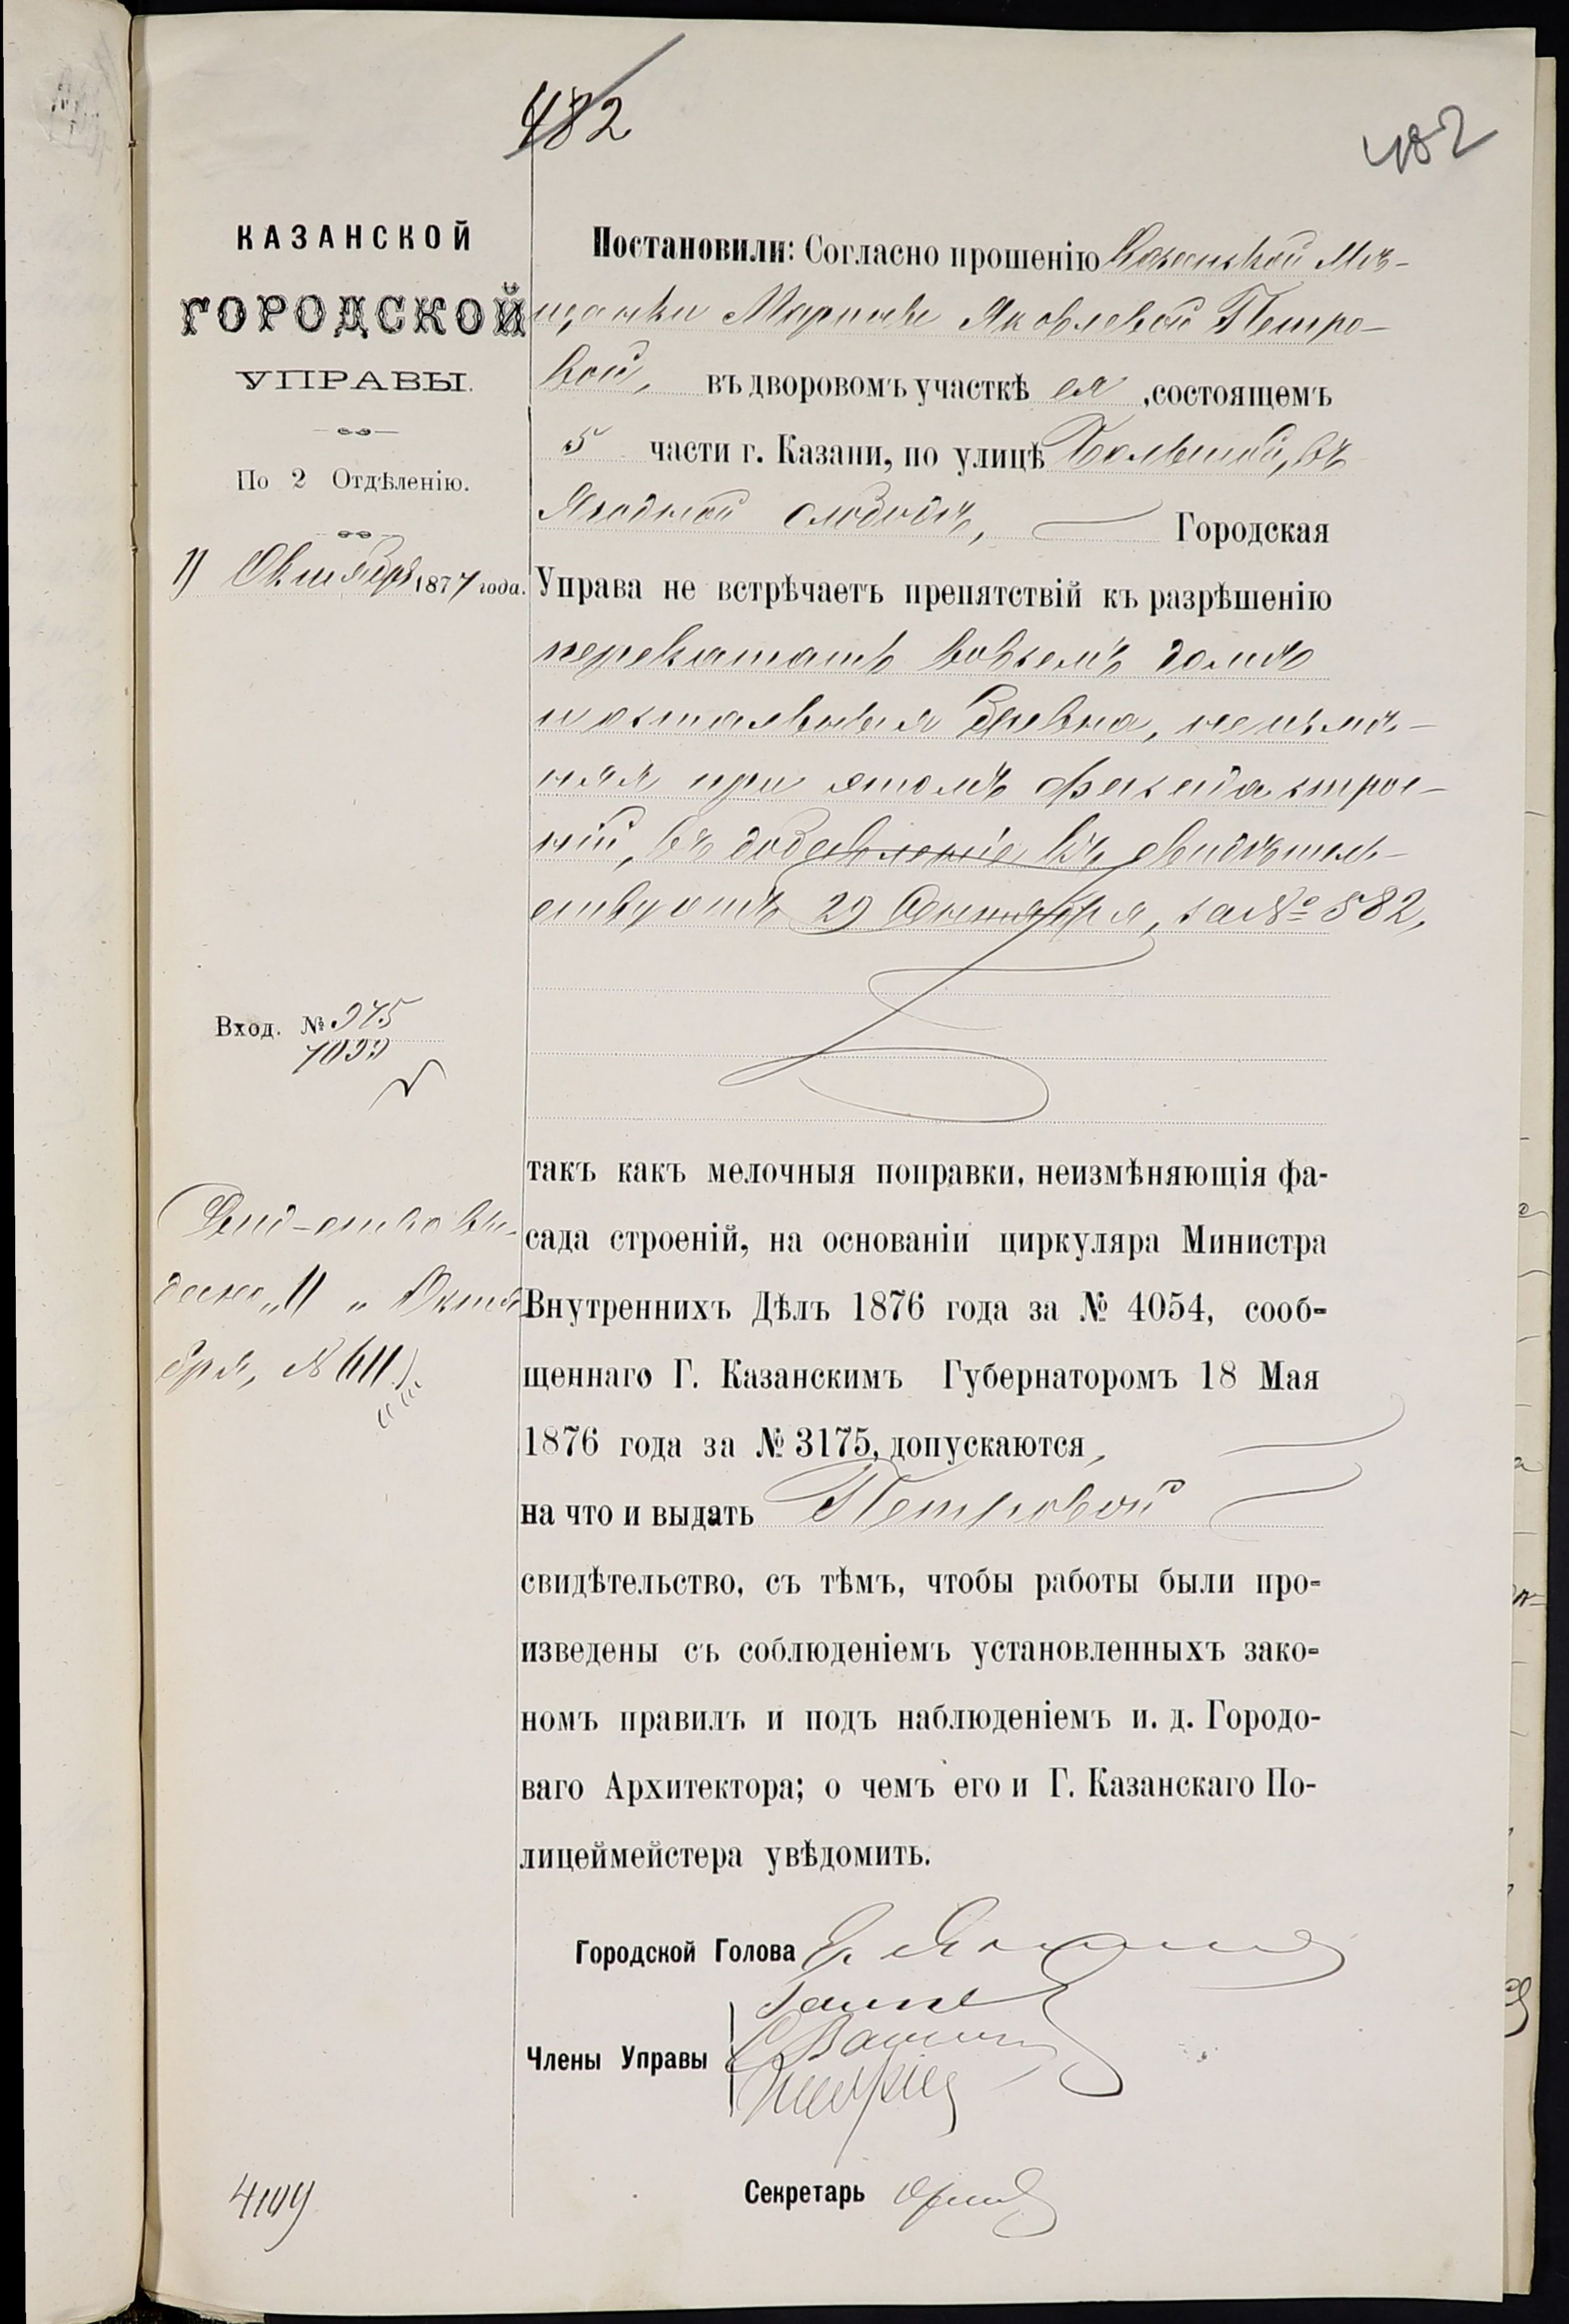 482
482
КАЗАНСКОЙ
ГОРОДСКОЙ
УПРАВЫ.
По 2 Отдѣленію.
11 Октября 1877 года.
Вход. № 975
7099
Свид-ство вы-
дано „11 „ Октя
бря, № 611.
4109
Постановили: Согласно прошенію Казанской Мѣ-
щанки Марины Яковлевой Петро-
вой, въ дворовомъ участкѣ ея, состоящемъ
5 части г. Казани, по улицѣ Большой, въ
Ягодной слободѣ, Городская
Управа не встрѣчаетъ препятствій къ разрѣшенію
перекатать вовсемъ домѣ
бревна, не измѣ-
няя при этомъ фасада строе-
ній, въ добавленіе къ свидѣтель-
29 Сентября, за № 582,
такъ какъ мелочныя поправки, неизмѣняющія фа-
сада строеній, на основаніи циркуляра Министра
Внутреннихъ Дѣлъ 1876 года за № 4054, сооб-
щеннаго Г. Казанскимъ Губернаторомъ 18 Мая
1876 года за № 3175, допускаются,
на что и выдать Петровой
свидѣтельство, съ тѣмъ, чтобы работы были про-
изведены съ соблюденіемъ установленныхъ зако-
номъ правилъ и подъ наблюденіемъ и. д. Городо-
ваго Архитектора; о чемъ его и Г. Казанскаго По-
лицеймейстера увѣдомить.
Городской Голова
Члены Управы
Секретарь